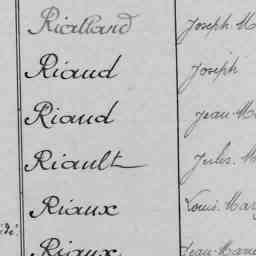 Rialland Joseph M
Riaud Joseph
Riaud Jean M
Riault Jules M
Riaux Louis Mar
Riaux Jean Marie